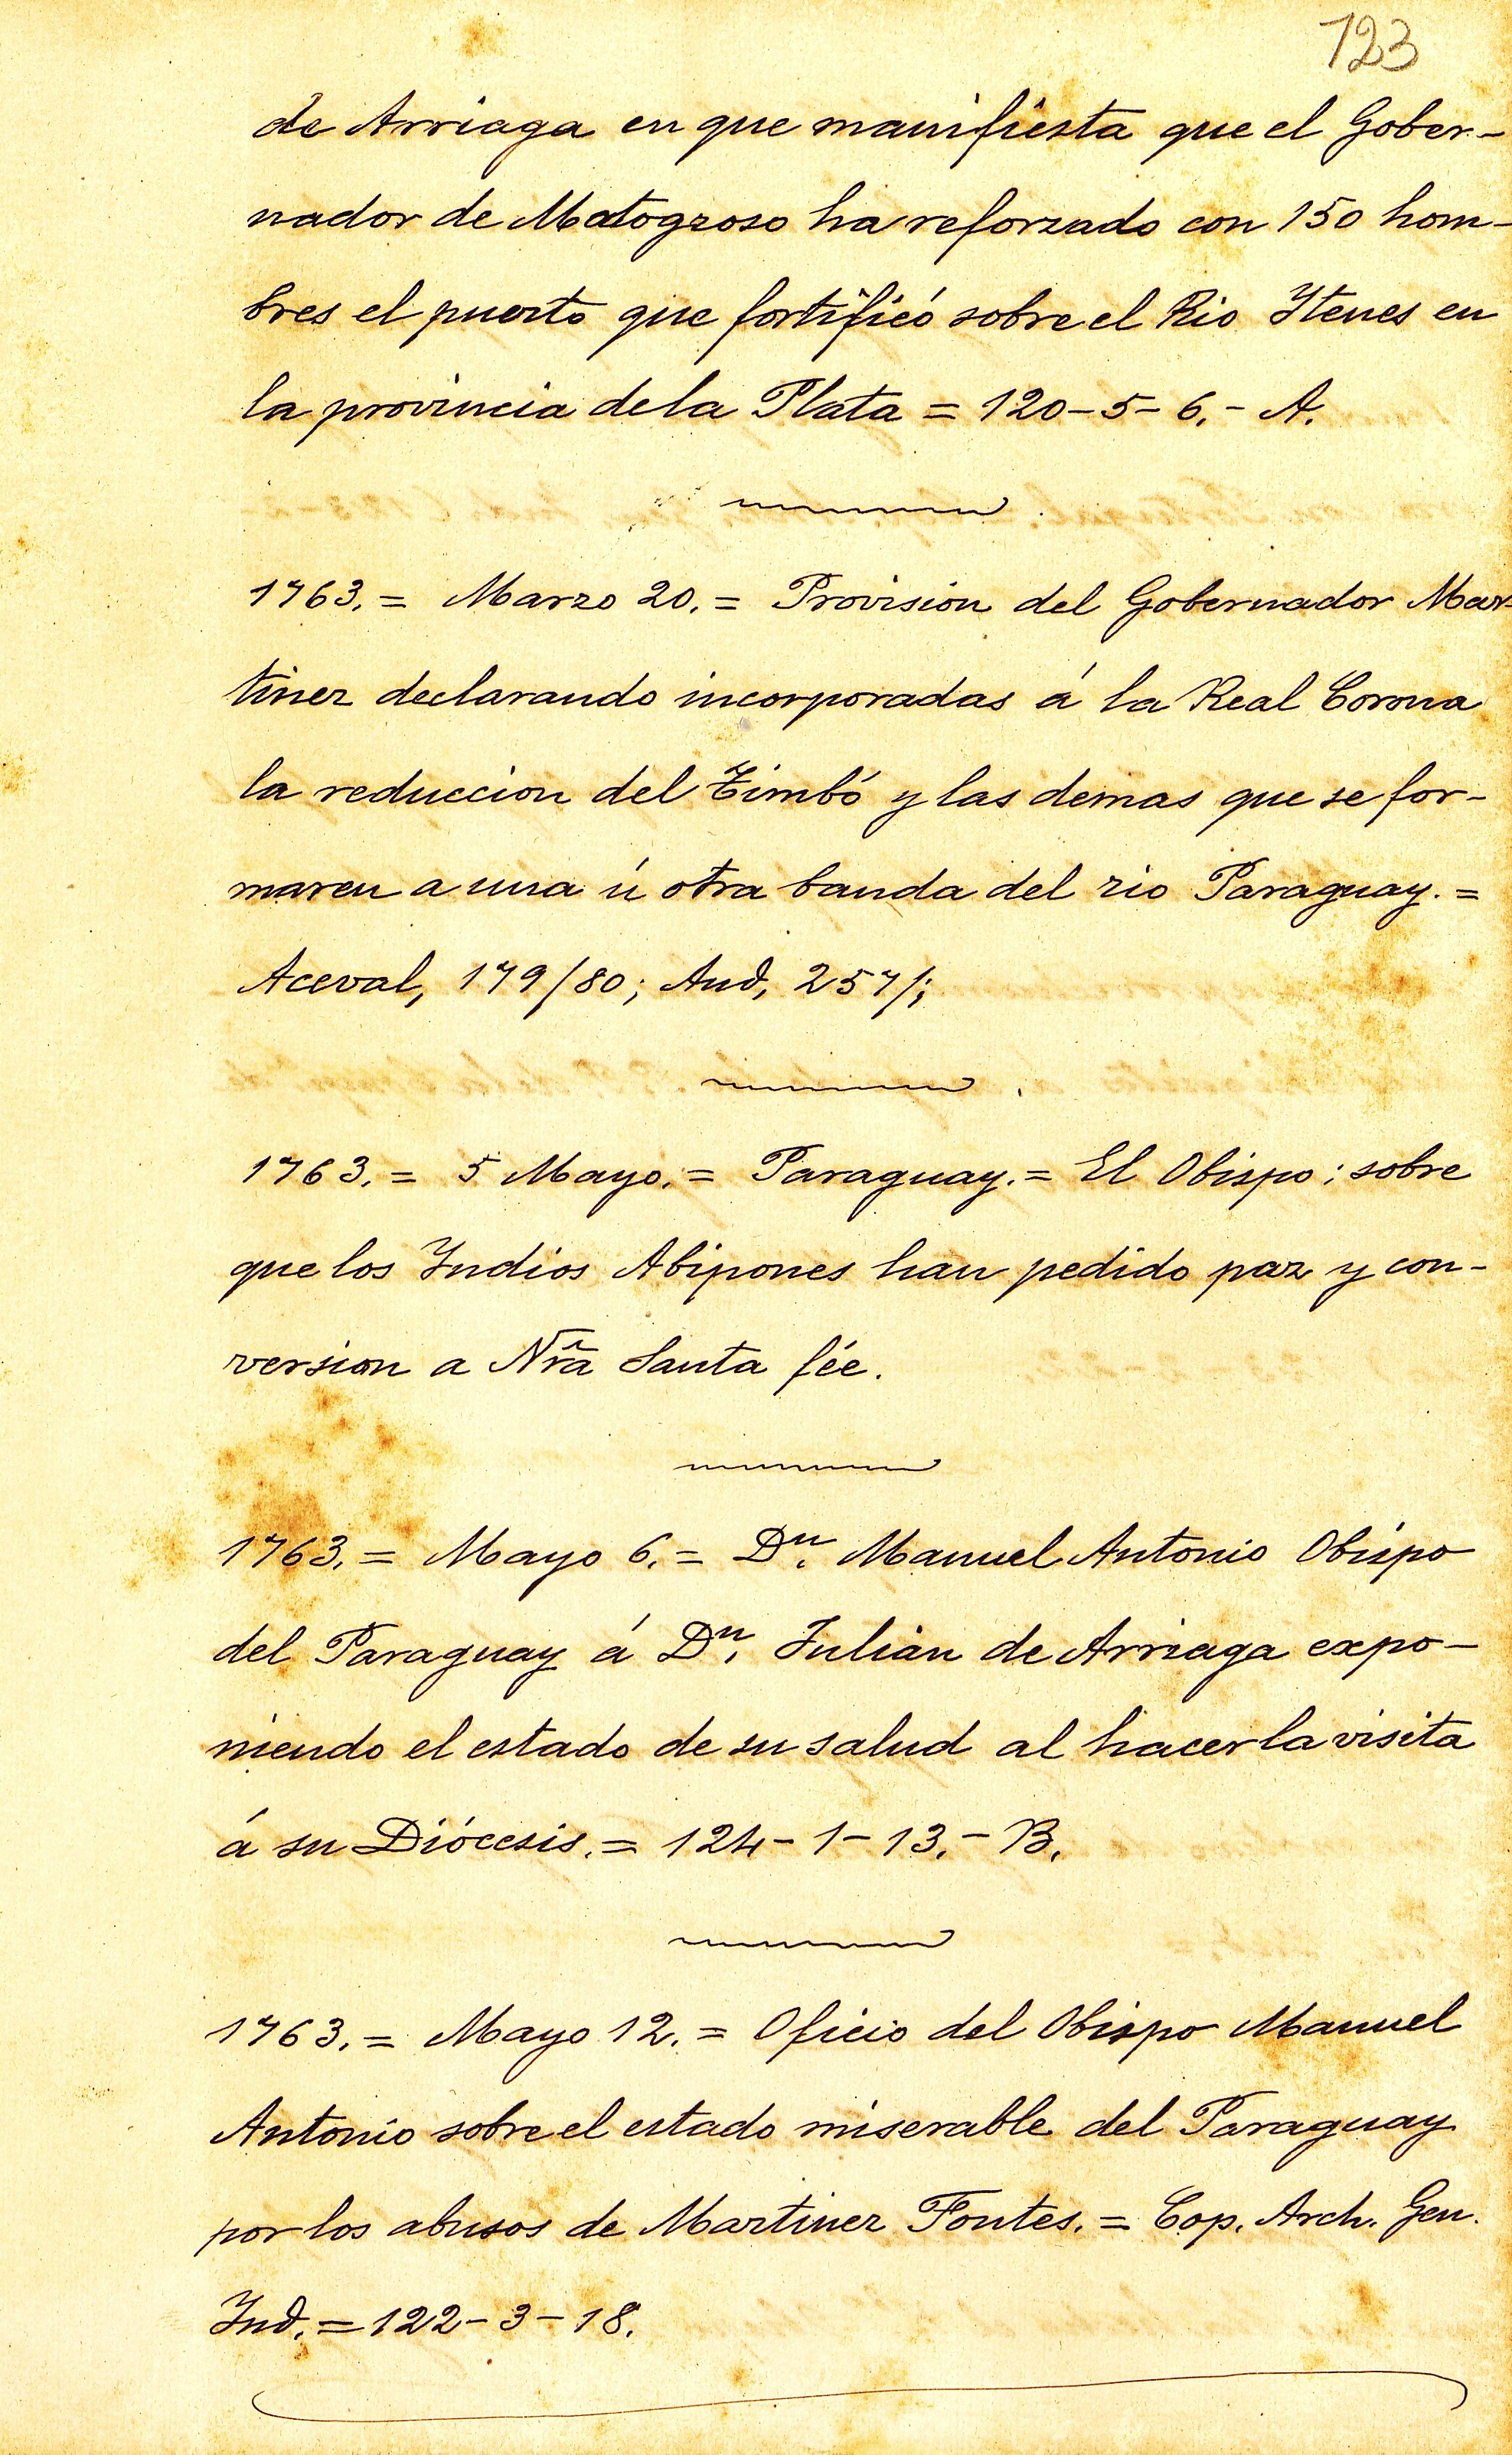 123
de Arriaga en que manifiesta que el Gober-
nador de Matogroso ha reforzado con 150 hom-
bres el puerto que fortificó sobre el Rio Ytenes en
la provincia de la Plata = 120-5-6.- A.
1763. = Marzo 20. = Provision del Gobernador Mar-
tinez declarando incorporadas á la Real Corona
la reduccion del Timbó y las demas que se for-
maren a una ú otra banda del rio Paraguay. =
Aceval, 179/80; Aud, 257/;
1763. = 5 Mayo. = Paraguay. = El Obispo; sobre
que los Yndios Abipones han pedido paz y con-
version a Nr̃a Santa fée.
1763. = Mayo 6. = Dn. Manuel Antonio Obispo
del Paraguay á Dn. Julian de Arriaga expo-
niendo el estado de su salud al hacer la visita
á su Diócesis. = 124-1-13.- B.
1763. = Mayo 12. = Oficio del Obispo Manuel
Antonio sobre el estado miserable del Paraguay
por los abusos de Martinez Fontes. = Cop. Arch. Gen.
Ynd. = 122-3-18.